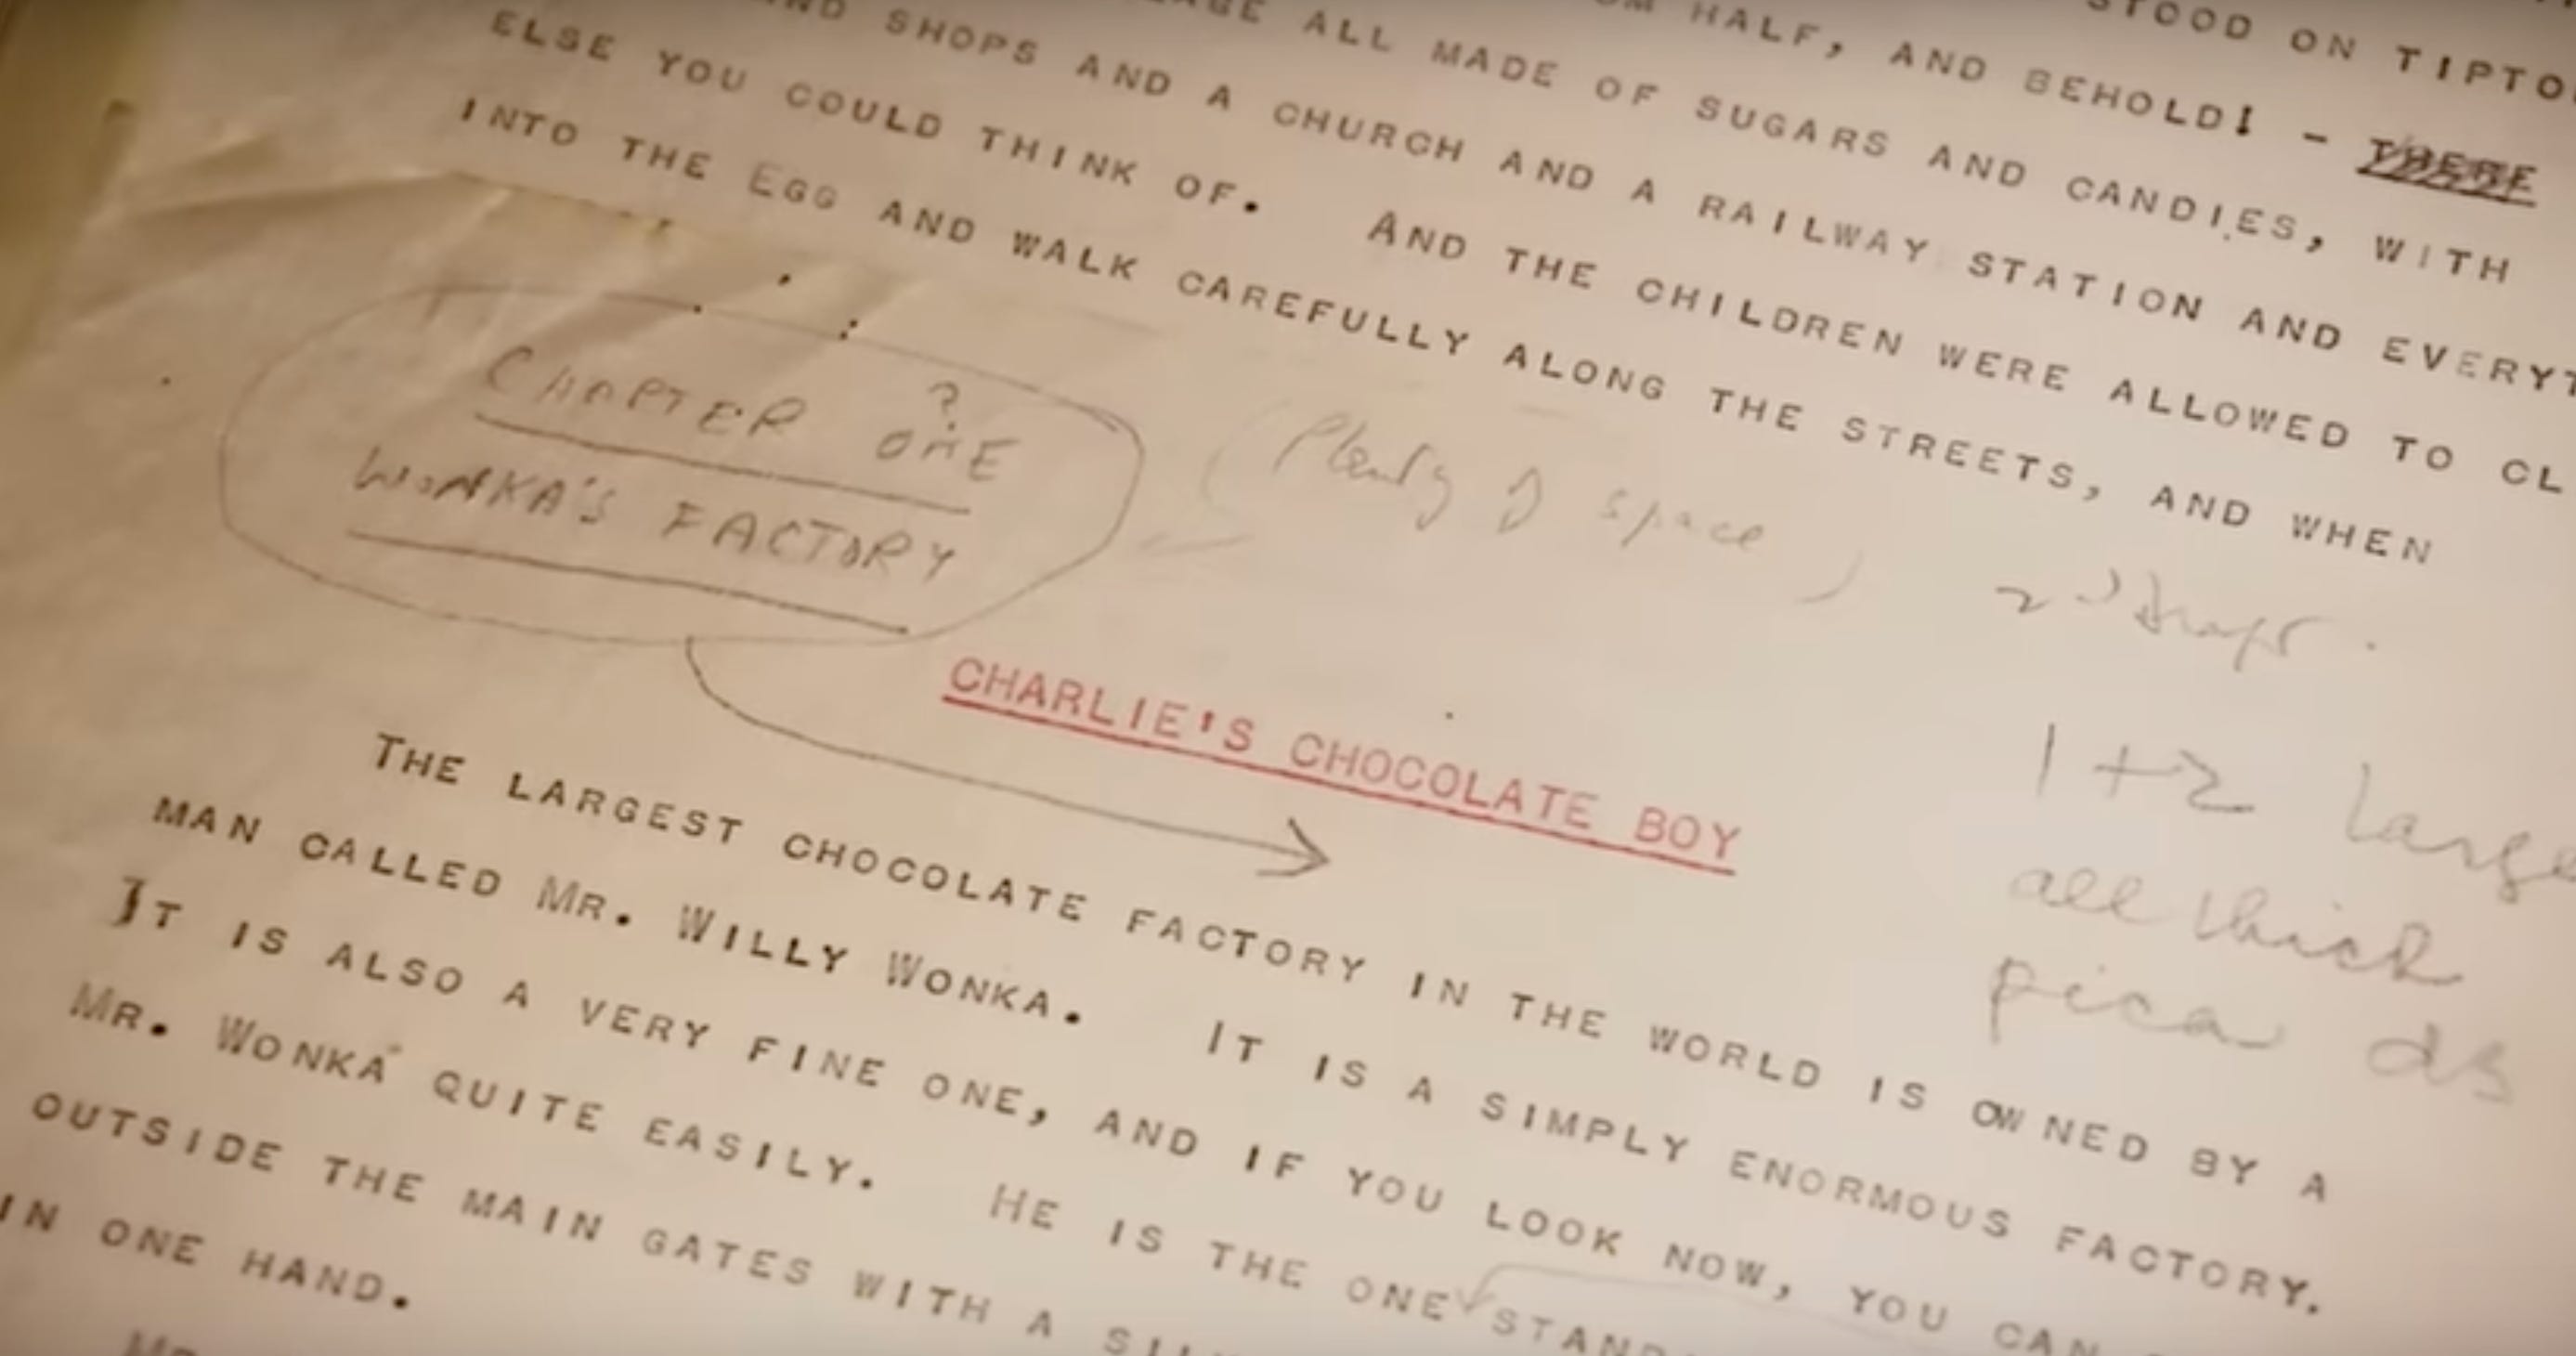 STOOD ON TIPTO
HALF, AND BEHOLD! - THERE
ALL MADE OF SUGARS AND CANDIES, WITH
SHOPS AND A CHURCH AND A RAILWAY STATION AND EVERYT
ELSE YOU COULD THINK OF. AND THE CHILDREN WERE ALLOWED TO CL
INTO THE EGG AND WALK CAREFULLY ALONG THE STREETS, AND WHEN
CHAPTER ONE ?
WONKA'S FACTORY
(Plenty of space)
2nd draft.
CHARLIE'S CHOCOLATE BOY
1 + 2 Large
all thick
pica as
THE LARGEST CHOCOLATE FACTORY IN THE WORLD IS OWNED BY A
MAN CALLED MR. WILLY WONKA. IT IS A SIMPLY ENORMOUS FACTORY.
IT IS ALSO A VERY FINE ONE, AND IF YOU LOOK NOW, YOU CAN
MR. WONKA QUITE EASILY. HE IS THE ONE STAND
OUTSIDE THE MAIN GATES WITH A
IN ONE HAND.